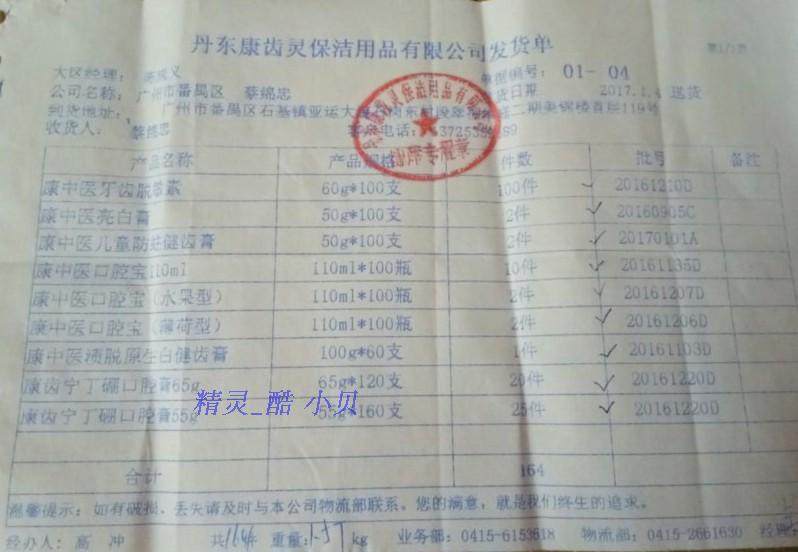 丹东康齿灵保洁用品有限公司发货单
大区经理:
单据编号: 01-04
公司名称: 广州市番禺区 蔡绵忠
发货日期 2017.1.4 送货
到货地址: 广州市番禺区石基镇亚运大道
二期美铜楼首层119号
收货人: 蔡绵忠
客户电话:
产品名称 产品规格 件数 批号 备注
康中医牙齿脱敏素 60g*100支 100件 20161210D
康中医亮白膏 50g*100支 2件 20160905C
康中医儿童防蛀健齿膏 50g*100支 2件 20170101A
康中医口腔宝110ml 110ml*100瓶 10件 20161135D
康中医口腔宝(水果型) 110ml*100瓶 2件 20161207D
康中医口腔宝(薄荷型) 110ml*100瓶 2件 20161206D
康中医渍脱原生白健齿膏 100g*60支 1件 20161103D
康齿宁丁硼口腔膏65g 65g*120支 20件 20161220D
康齿宁丁硼口腔膏55g 55g*160支 25件 20161220D
精灵_酷 小贝
合计 164
温馨提示: 如有破损、丢失请及时与本公司物流部联系。您的满意,就是我们终生的追求。
经办人: 高 冲 共164件 重量: kg 业务部: 0415-6153618 物流部: 0415-2661630 经理: